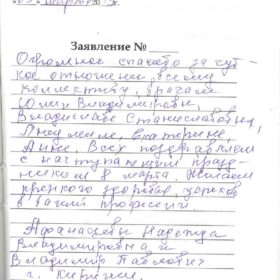 "05" марта 2013г.
Заявление №
Огромное спасибо за чут-
кое отношение всему
коллективу, врачам
Юлии Владимировны,
Владиславе Станиславовны,
Людмиле, Екатерине,
Анне, Всех поздравляем
с наступающим празд-
ником 8 марта. Желаем
крепкого здоровья, успехов
в вашей профессии.
Афанасьевы Надежда
Владимировна и
Владимир Павлович
г. Киренск.